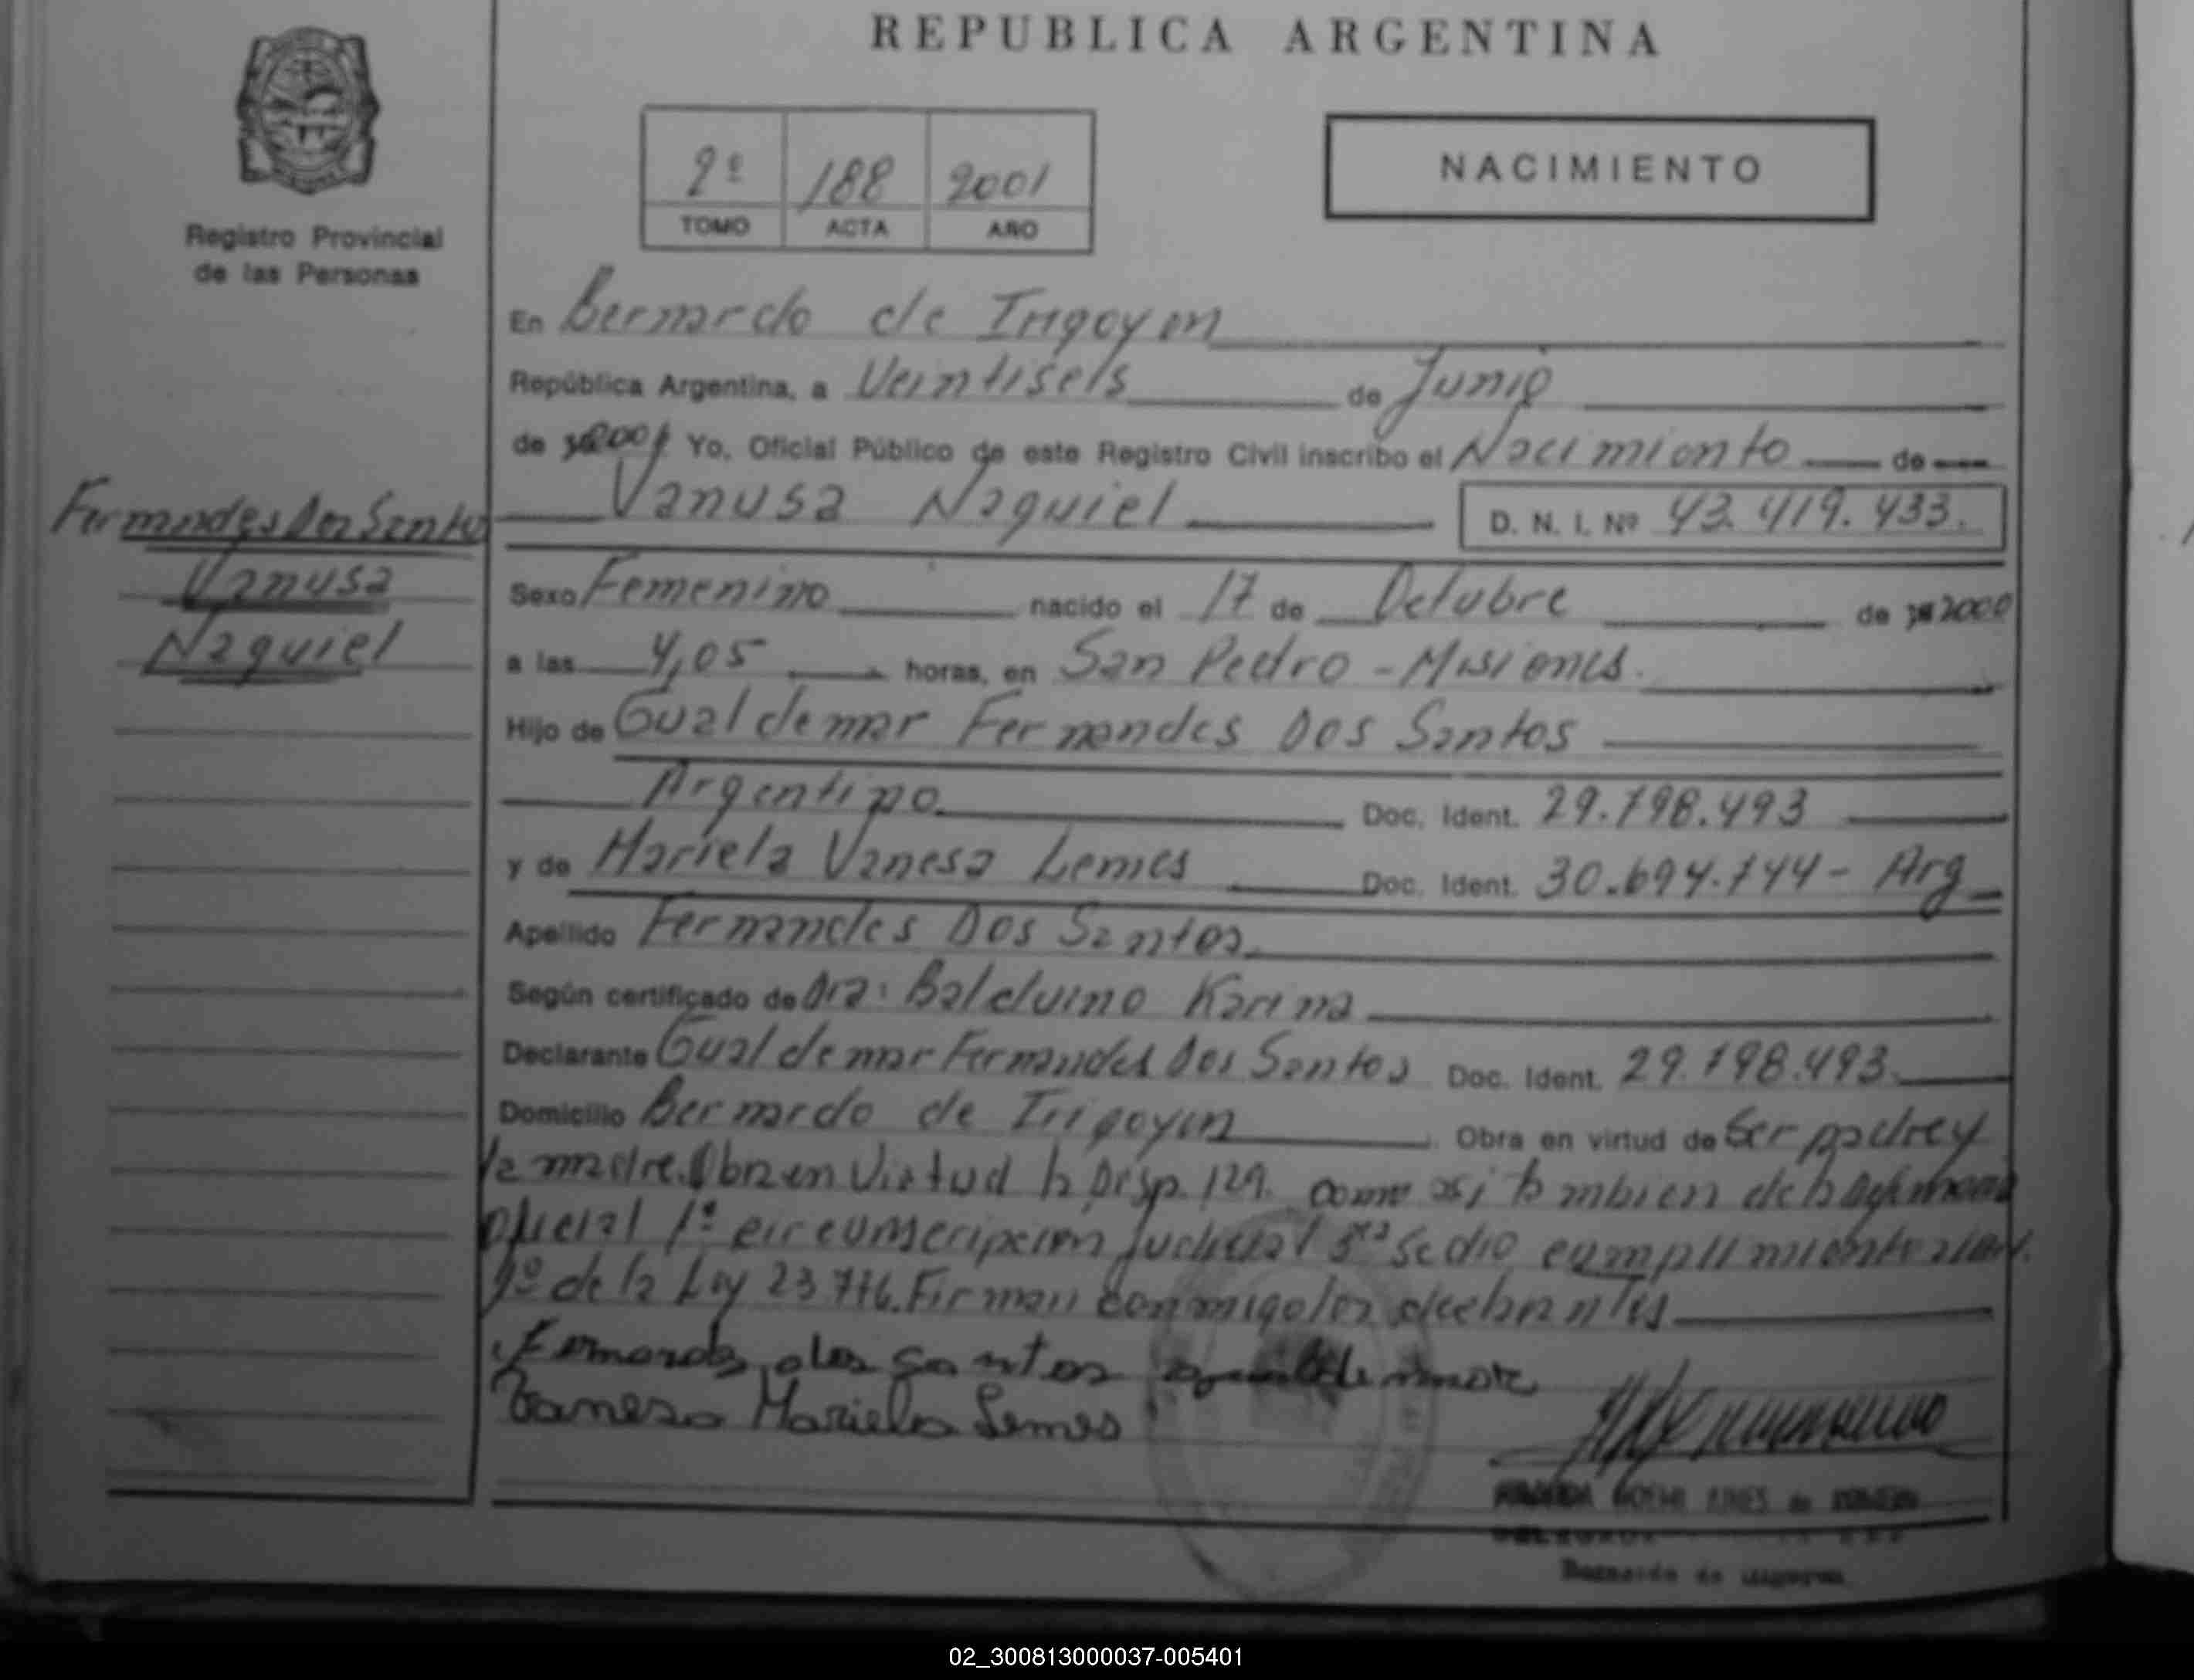 REPUBLICA ARGENTINA
2º 188 2001
TOMO ACTA AÑO
NACIMIENTO
Registro Provincial
de las Personas
En Bernardo de Irigoyen
República Argentina, a Veintiseis de Junio
de 2001 Yo, Oficial Público de este Registro Civil inscribo el Nacimiento de
Vanusa Naquiel D. N. I. Nº 43.419.433.
Fernandes Dos Santos
Vanusa
Naquiel
Sexo Femenino nacido el 17 de Octubre de 2000
a las 4,05 horas, en San Pedro - Misiones.
Hijo de Gualdemar Fernandes Dos Santos
Argentino Doc. Ident. 29.798.493
y de Mariela Vanesa Lemes Doc. Ident. 30.694.744 - Arg
Apellido Fernandes Dos Santos
Según certificado de Dra: Balduino Karina
Declarante Gualdemar Fernandes Dos Santos Doc. Ident. 29.798.493.
Domicilio Bernardo de Irigoyen Obra en virtud de Ser padre y
la madre. Obra en Virtud la Disp. 129. como asi tambien de la
oficial 1º circunscripcion Judicial se dio cumplimiento
9º de la Ley 23.776. Firman conmigo los
dos santos
Vanesa Mariela Lemes
Bernardo de Irigoyen
02_300813000037-005401